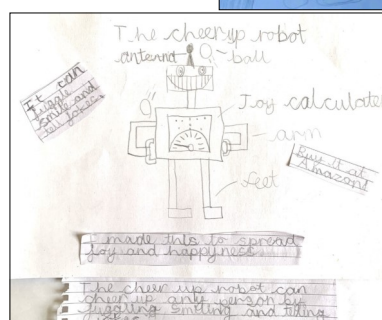 The cheer up robot
antenna
ball
It can
juggle
smile and
tell jokes
Joy calculater
arm
Buy it at
Amazon!
feet
I made this to spread
joy and happyness
The cheer up robot can
cheer up any person by
juggaling smiling and telling
jokes